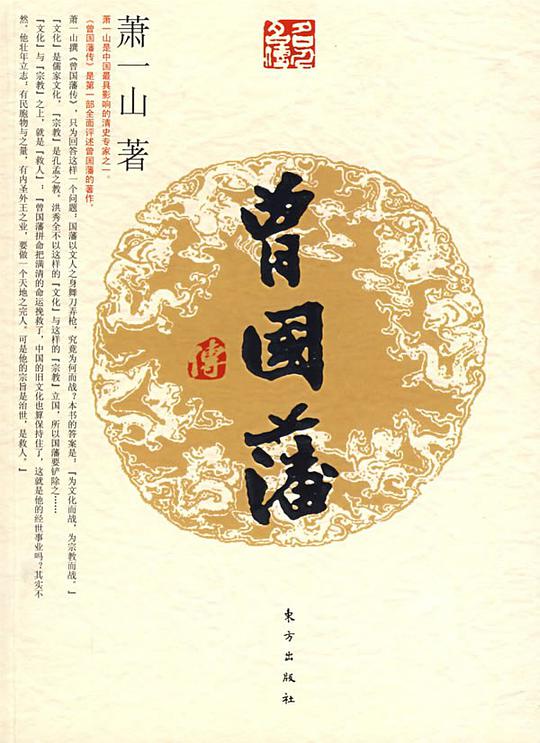 名人
名傳
萧一山 著
萧一山是中国最具影响的清史专家之一。
《曾国藩传》是第一部全面评述曾国藩的著作。
萧一山撰《曾国藩传》，只为回答这样一个问题：国藩以文人之身舞刀弄枪，究竟为何而战？本书的答案是：『为文化而战，为宗教而战。』
『文化』是儒家文化，『宗教』是孔孟之教。洪秀全不以这样的『文化』与这样的『宗教』立国，所以国藩要铲除之……
『文化』与『宗教』之上，就是『救人』：『曾国藩拼命把满清的命运挽救了，中国的旧文化也算保持住了，这就是他的经世事业吗？其实不
然，他壮年立志：有民胞物与之量，有内圣外王之业，要做一个天地之完人。可是他的宗旨是治世，是救人。』
曾國藩
傳
東方出版社